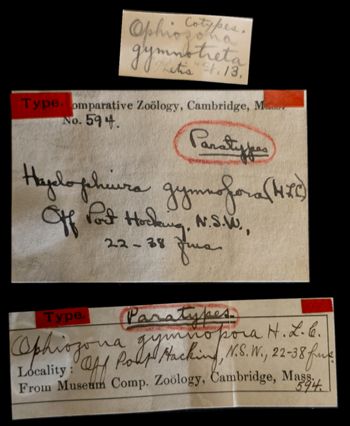 Cotypes.
Ophiozona
gymnotreta
13.
Type. omparative Zoölogy, Cambridge, Mass.
No. 594.
Paratypes
Haplophiura gymnopora (HLC)
Off Port Hacking, N.S.W.,
22-38 fms
Type.
Paratypes.
Ophiozona gymnopora H. L. C.
Locality: Off Port Hacking, N.S.W., 22-38 fms.
From Museum Comp. Zoölogy, Cambridge, Mass.
594.